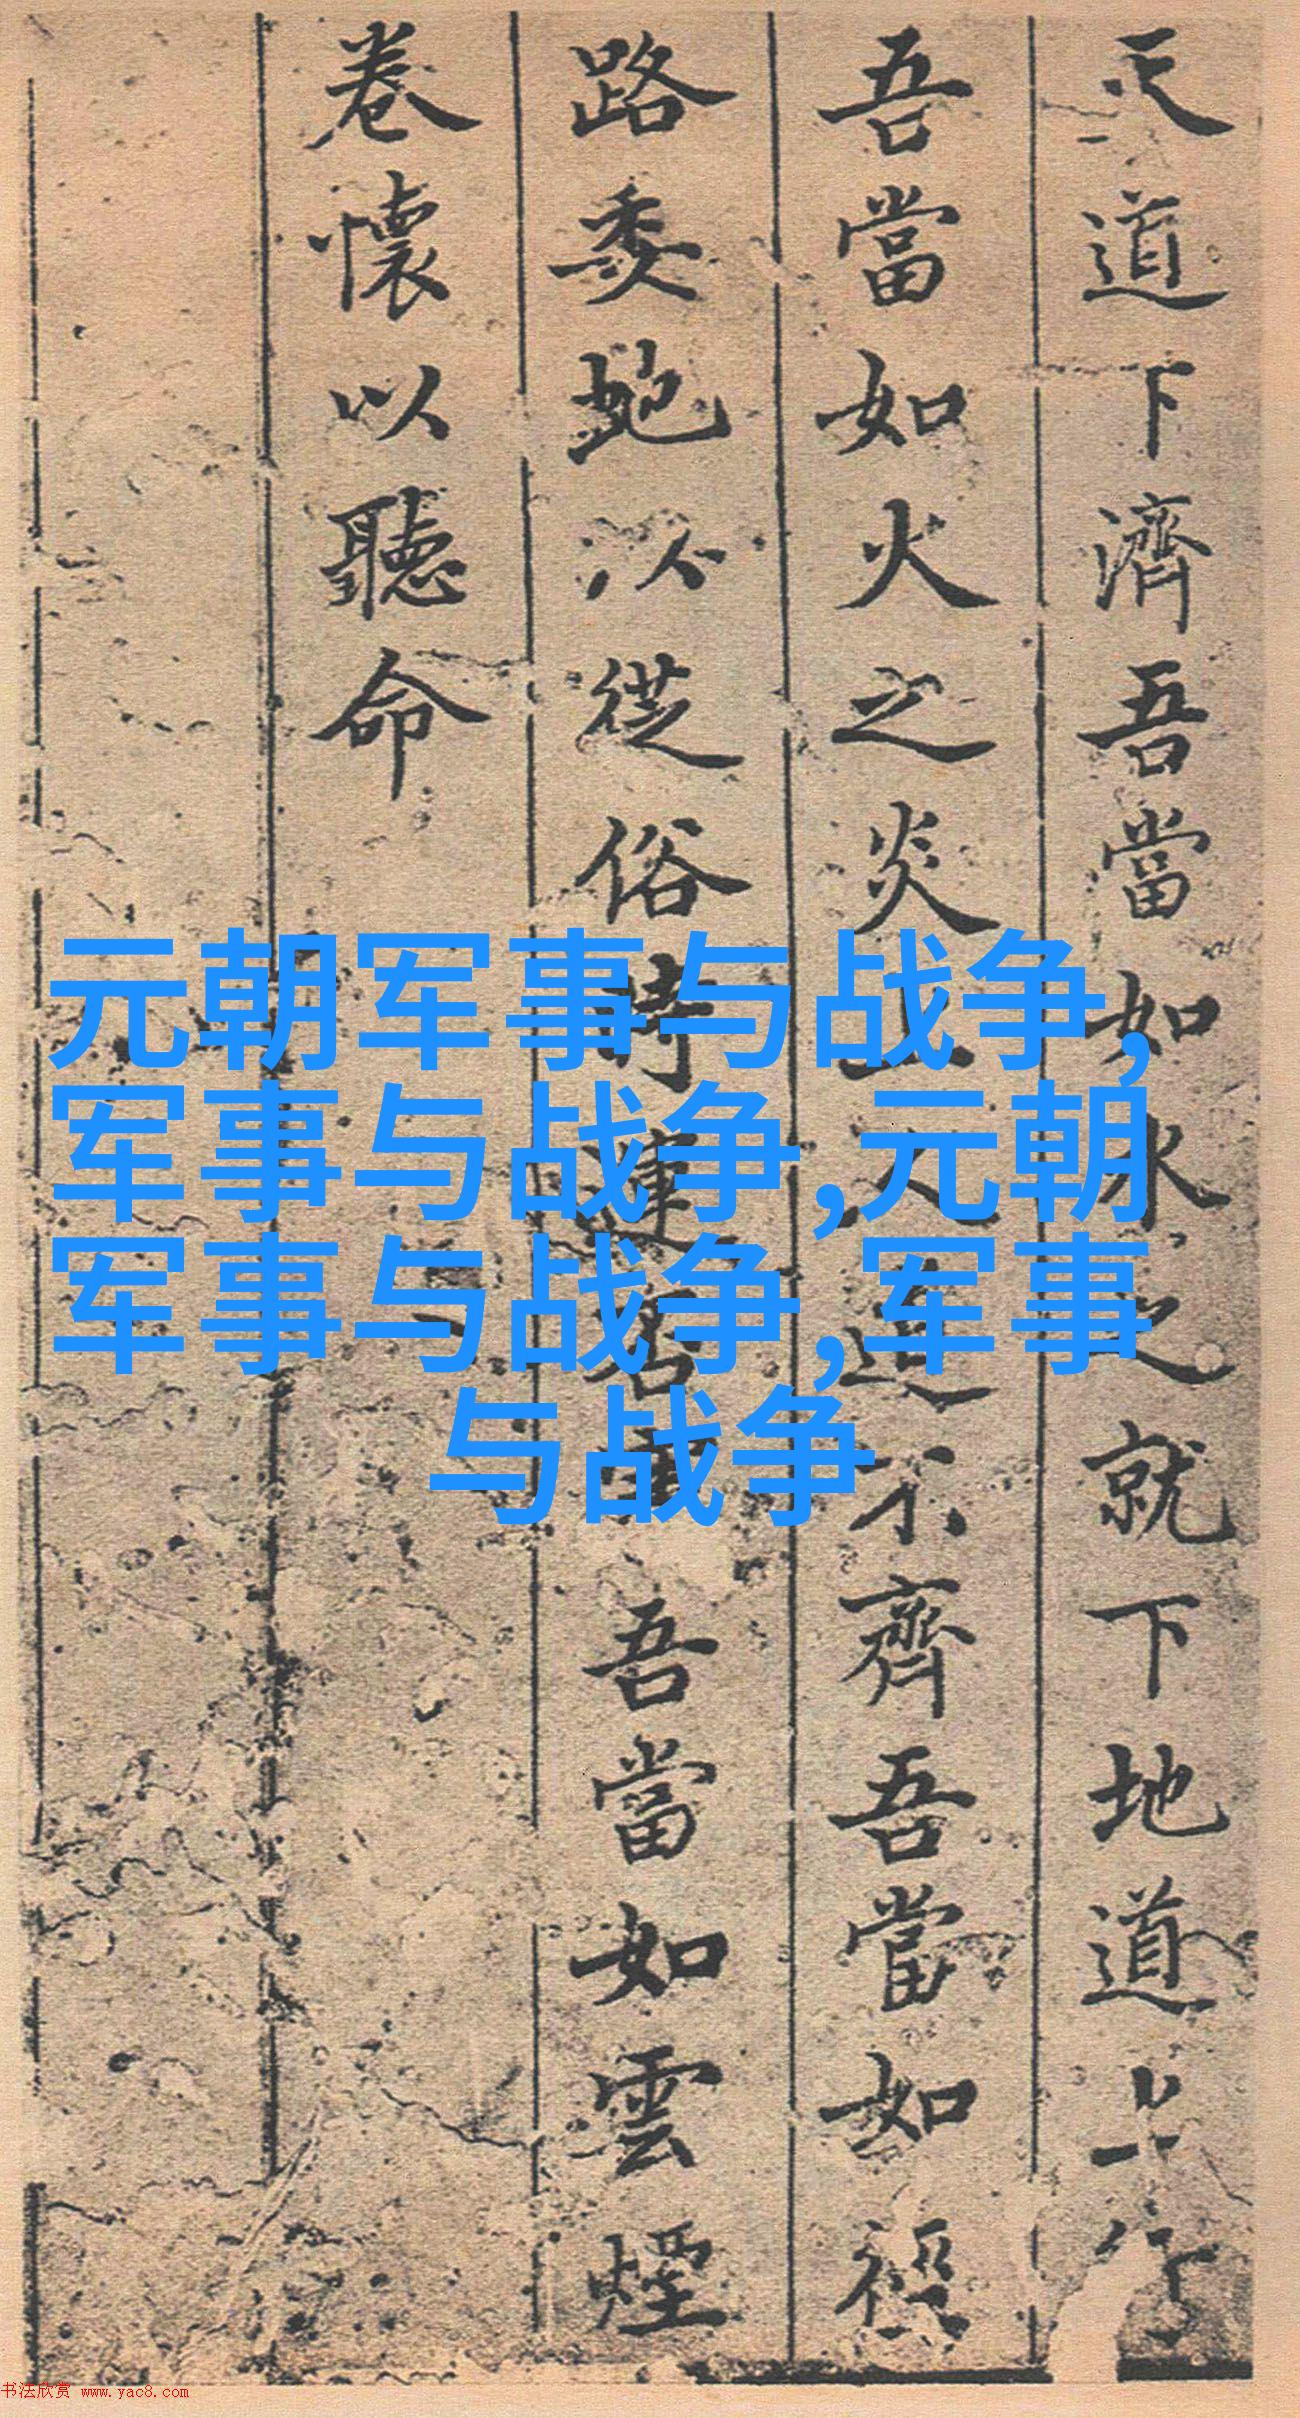 天道下濟吾當如水之就下地道上行
吾當如火之炎上人道不齊吾當如逕
路委蛇以從俗時運若車吾當如雲煙
卷懷以聽命
元朝军事与战争,
军事与战争,元朝
军事与战争,军事
与战争
书法欣赏 www.yac8.com